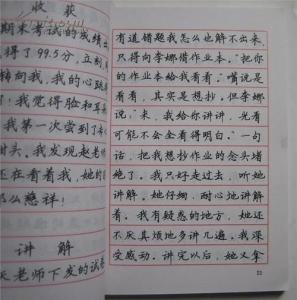 收 获
期末考试的成绩出
得了99.5分,立刻,
转向我,我的心跳
!我觉得脸和耳
我第一次尝到了
甜头。我发现赵老
还在看着我,她的
那么慈祥!
讲 解
天老师下发的试卷
有道错题我怎么也解不出来,
只得向李娜借作业本。“把你
的作业本给我看看。”嘴说是
看看,其实是想抄。但李娜
说:“来,我给你讲讲,光看
可能不会全看得明白。”一句
话,把我想抄作业的念头堵
绝了。我只好走过去,听她
讲解。她仔细、耐心地讲解
着。我有疑惑的地方,她还
不厌其烦地多讲几遍。我深
受感动。讲完以后,她又拿